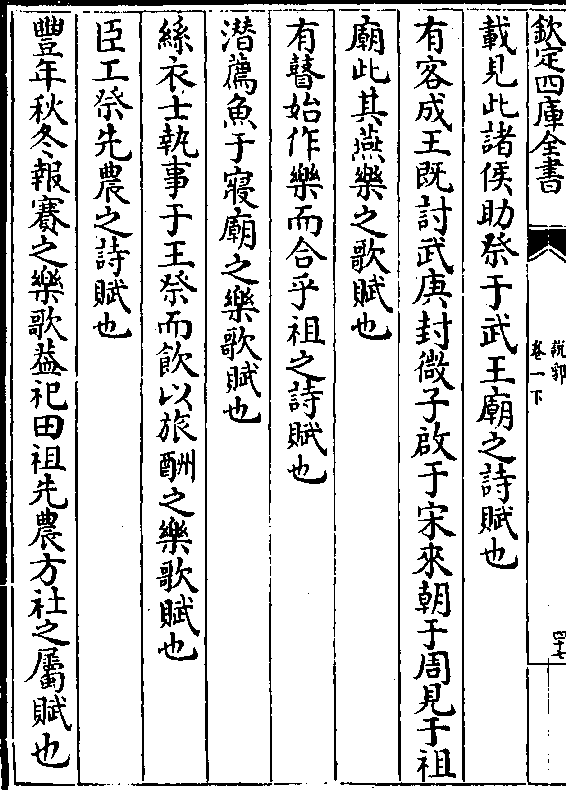 欽定四庫全書
說郛
卷一下
四十七
載見此諸侯助祭于武王廟之詩賦也
有客成王既討武庚封微子啟于宋來朝于周見于祖
廟此其燕樂之歌賦也
有瞽始作樂而合乎祖之詩賦也
潛薦魚于寢廟之樂歌賦也
絲衣士執事于王祭而飲以旅酬之樂歌賦也
臣工祭先農之詩賦也
豐年秋冬報賽之樂歌葢祀田祖先農方社之屬賦也